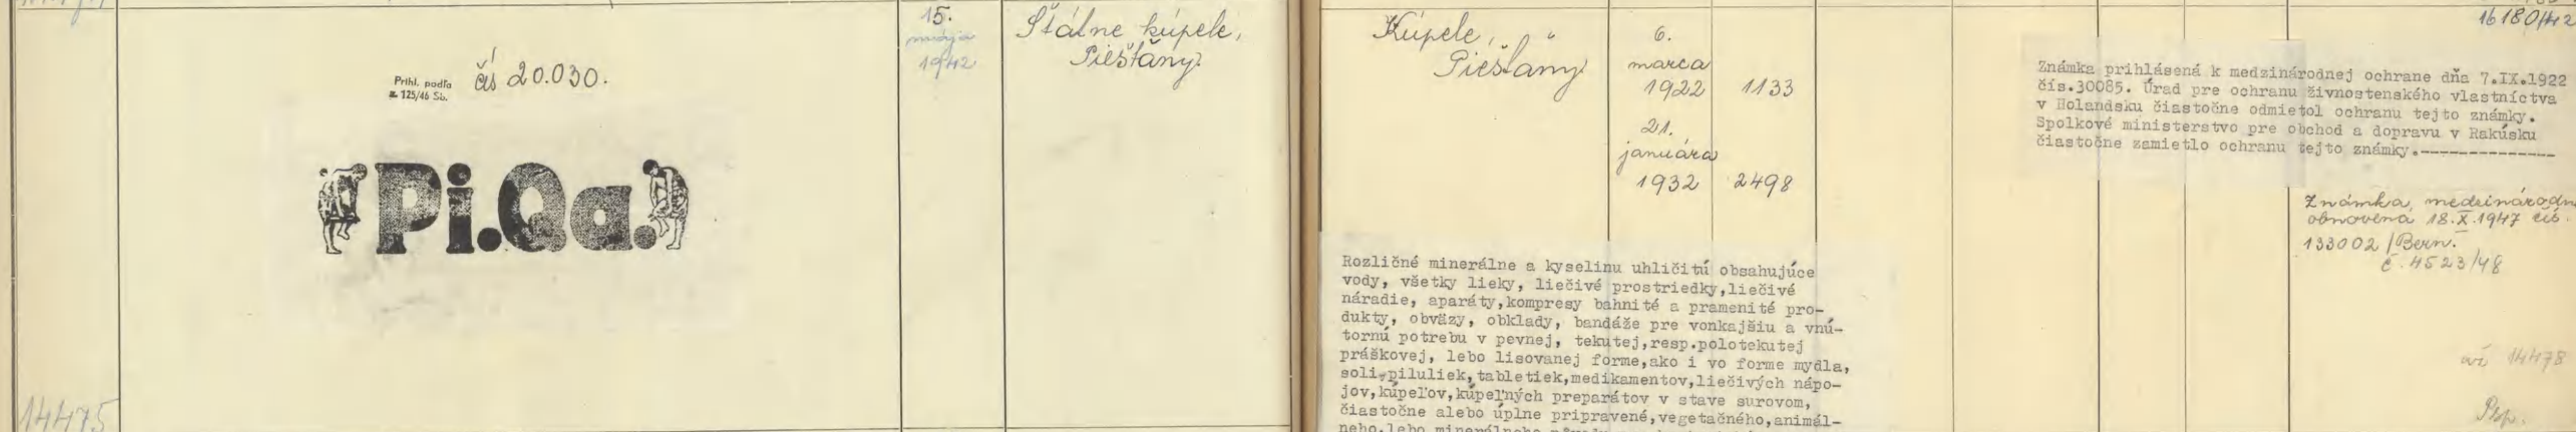 Prihl. podľa
z. 125/46 Sb.
čís 20.030.
Pi.Qa.
14475
15.
mája
1942
Štálne kúpele,
Piešťany.
Kúpele,
Piešťany
6.
marca
1922 1133
21.
januára
1932 2498
Rozličné minerálne a kyselinu uhličitú obsahujúce
vody, všetky lieky, liečivé prostriedky,liečivé
náradie, aparáty,kompresy bahnité a pramenité pro-
dukty, obväzy, obklady, bandáže pre vonkajšiu a vnú-
tornú potrebu v pevnej, tekutej,resp.polotekutej
práškovej, lebo lisovanej forme,ako i vo forme mydla,
soli,piluliek,tabletiek,medikamentov,liečivých nápo-
jov,kúpeľov,kúpeľných preparátov v stave surovom,
čiastočne alebo úplne pripravené,vegetačného,animál-
neho,lebo minerálneho
16180/42
Známka prihlásená k medzinárodnej ochrane dňa 7.IX.1922
čís.30085. Úrad pre ochranu živnostenského vlastníctva
v Holandsku čiastočne odmietol ochranu tejto známky.
Spolkové ministerstvo pre obchod a dopravu v Rakúsku
čiastočne zamietlo ochranu tejto známky.---------------
Známka medzinárodn
obnovená 18.X.1947 čís.
133002/Bern.
č. 4523/48
14478